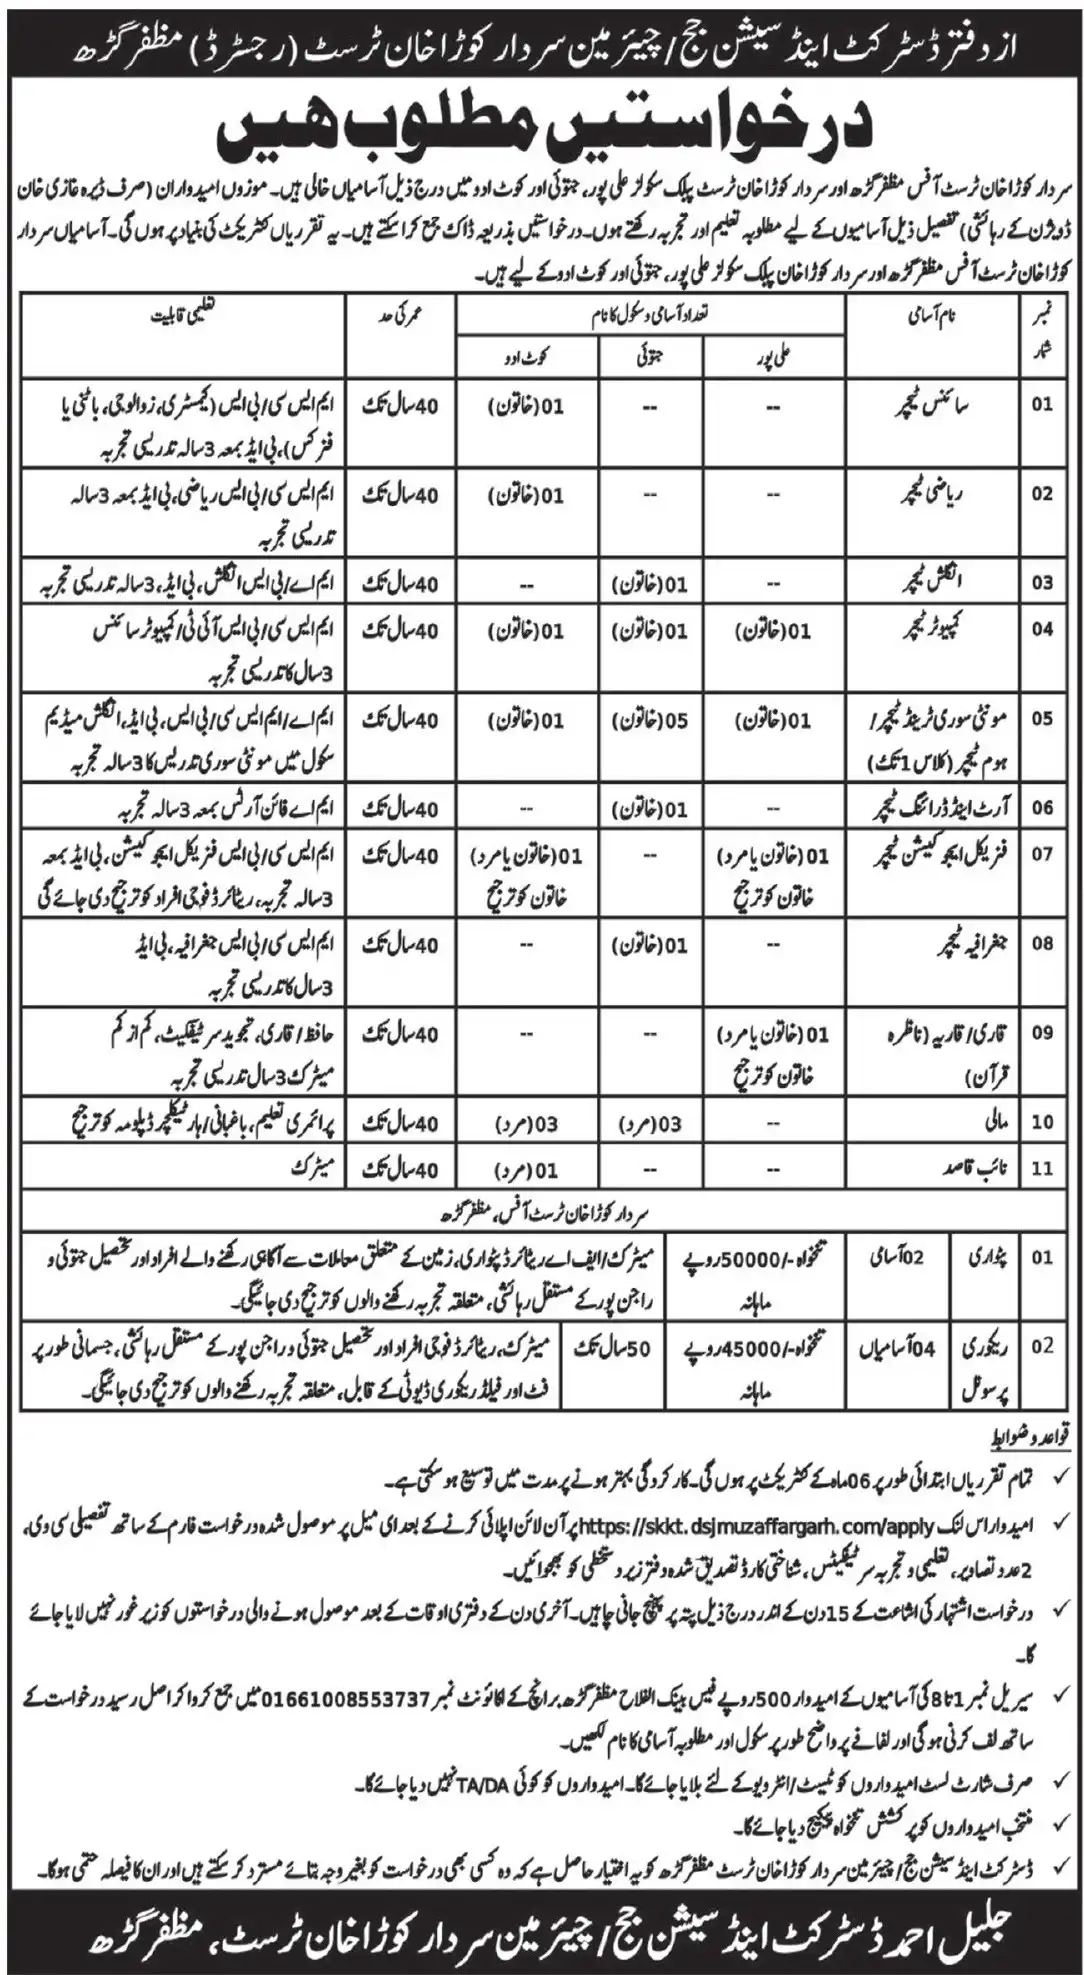 از دفتر ڈسٹرکٹ اینڈ سیشن جج/چیئرمین سردار کوڑا خان ٹرسٹ (رجسٹرڈ) مظفر گڑھ
درخواستیں مطلوب ہیں
سردار کوڑا خان ٹرسٹ آفس مظفر گڑھ اور سردار کوڑا خان ٹرسٹ پبلک سکولز علی پور، جتوئی اور کوٹ ادو میں درج ذیل آسامیاں خالی ہیں۔ موزوں امیدواران (صرف ڈیرہ غازی خان
ڈویژن کے رہائشی) تفصیل ذیل آسامیوں کے لیے مطلوبہ تعلیم اور تجربہ رکھتے ہوں۔ درخواستیں بذریعہ ڈاک جمع کراسکتے ہیں۔ یہ تقرریاں کنٹریکٹ کی بنیاد پر ہوں گی۔ آسامیاں سردار
کوڑا خان ٹرسٹ آفس مظفر گڑھ اور سردار کوڑا خان پبلک سکولز علی پور، جتوئی اور کوٹ ادو کے لیے ہیں۔
نمبر شمار | نام آسامی | تعداد آسامی و سکول کا نام | عمر کی حد | تعلیمی قابلیت
علی پور | جتوئی | کوٹ ادو
01 | سائنس ٹیچر | -- | -- | 01(خاتون) | 40سال تک | ایم ایس سی/بی ایس (کیمسٹری، زوالوجی، باٹنی یا
فزکس)، بی ایڈ بمعہ 3سالہ تدریسی تجربہ
02 | ریاضی ٹیچر | -- | -- | 01(خاتون) | 40سال تک | ایم ایس سی/بی ایس ریاضی، بی ایڈ بمعہ 3سالہ
تدریسی تجربہ
03 | انگلش ٹیچر | -- | 01(خاتون) | -- | 40سال تک | ایم اے/بی ایس انگلش، بی ایڈ، 3سالہ تدریسی تجربہ
04 | کمپیوٹر ٹیچر | 01(خاتون) | 01(خاتون) | 01(خاتون) | 40سال تک | ایم ایس سی/بی ایس آئی ٹی/کمپیوٹر سائنس
3سال کا تدریسی تجربہ
05 | مونٹی سوری ٹرینڈ ٹیچر/ | 01(خاتون) | 05(خاتون) | 01(خاتون) | 40سال تک | ایم اے/ایم ایس سی/بی ایس، بی ایڈ، انگلش میڈیم
ہوم ٹیچر (کلاس 1 تک) | سکول میں مونٹی سوری تدریس کا 3سالہ تجربہ
06 | آرٹ اینڈ ڈرائنگ ٹیچر | -- | 01(خاتون) | -- | 40سال تک | ایم اے فائن آرٹس بمعہ 3سالہ تجربہ
07 | فزیکل ایجوکیشن ٹیچر | 01(خاتون یا مرد) | -- | 01(خاتون یا مرد) | 40سال تک | ایم ایس سی/بی ایس فزیکل ایجوکیشن، بی ایڈ بمعہ
خاتون کو ترجیح | خاتون کو ترجیح | 3سالہ تجربہ، ریٹائرڈ فوجی افراد کو ترجیح دی جائے گی
08 | جغرافیہ ٹیچر | -- | 01(خاتون) | -- | 40سال تک | ایم ایس سی/بی ایس جغرافیہ، بی ایڈ
3سال کا تدریسی تجربہ
09 | قاری/قاریہ (ناظرہ | 01(خاتون یا مرد) | -- | -- | 40سال تک | حافظ/قاری، تجوید سرٹیفکیٹ، کم از کم
قرآن) | خاتون کو ترجیح | میٹرک 3سال تدریسی تجربہ
10 | مالی | -- | 03(مرد) | 03(مرد) | 40سال تک | پرائمری تعلیم، باغبانی/ہارٹیکلچر ڈپلومہ کو ترجیح
11 | نائب قاصد | -- | -- | 01(مرد) | 40سال تک | میٹرک
سردار کوڑا خان ٹرسٹ آفس، مظفر گڑھ
01 | پٹواری | 02آسامی | تنخواہ -/50000روپے | میٹرک/ایف اے ریٹائرڈ پٹواری، زمین کے متعلق معاملات سے آگاہی رکھنے والے افراد اور تحصیل جتوئی و
ماہانہ | راجن پور کے مستقل رہائشی، متعلقہ تجربہ رکھنے والوں کو ترجیح دی جائیگی۔
02 | ریکوری | 04آسامیاں | تنخواہ -/45000روپے | 50سال تک | میٹرک، ریٹائرڈ فوجی افراد اور تحصیل جتوئی و راجن پور کے مستقل رہائشی، جسمانی طور پر
پرسونل | ماہانہ | فٹ اور فیلڈ ریکوری ڈیوٹی کے قابل، متعلقہ تجربہ رکھنے والوں کو ترجیح دی جائیگی۔
قواعد و ضوابط
✓ تمام تقرریاں ابتدائی طور پر 06ماہ کے کنٹریکٹ پر ہوں گی۔ کارکردگی بہتر ہونے پر مدت میں توسیع ہوسکتی ہے۔
✓ امیدوار اس لنک https://skkt.dsjmuzaffargarh.com/apply پر آن لائن اپلائی کرنے کے بعد ای میل پر موصول شدہ درخواست فارم کے ساتھ تفصیلی سی وی،
2عدد تصاویر، تعلیمی و تجربہ سرٹیفکیٹس، شناختی کارڈ تصدیق شدہ دفتر زیر دستخطی کو بھجوائیں۔
✓ درخواست اشتہار کی اشاعت کے 15دن کے اندر درج ذیل پتہ پر پہنچ جانی چاہیں۔ آخری دن کے دفتری اوقات کے بعد موصول ہونے والی درخواستوں کو زیر غور نہیں لایا جائے
گا۔
✓ سیریل نمبر 1تا8 کی آسامیوں کے امیدوار 500روپے فیس بینک الفلاح مظفر گڑھ برانچ کے اکائونٹ نمبر 01661008553737 میں جمع کروا کر اصل رسید درخواست کے
ساتھ لف کرنی ہوگی اور لفافے پر واضح طور پر سکول اور مطلوبہ آسامی کا نام لکھیں۔
✓ صرف شارٹ لسٹ امیدواروں کو ٹیسٹ/انٹرویو کے لئے بلایا جائے گا۔ امیدواروں کو کوئی TA/DA نہیں دیا جائے گا۔
✓ منتخب امیدواروں کو پرکشش تنخواہ پیکیج دیا جائے گا۔
✓ ڈسٹرکٹ اینڈ سیشن جج/چیئرمین سردار کوڑا خان ٹرسٹ مظفر گڑھ کو یہ اختیار حاصل ہے کہ وہ کسی بھی درخواست کو بغیر وجہ بتائے مسترد کر سکتے ہیں اور ان کا فیصلہ حتمی ہوگا۔
جلیل احمد ڈسٹرکٹ اینڈ سیشن جج/چیئرمین سردار کوڑا خان ٹرسٹ، مظفر گڑھ